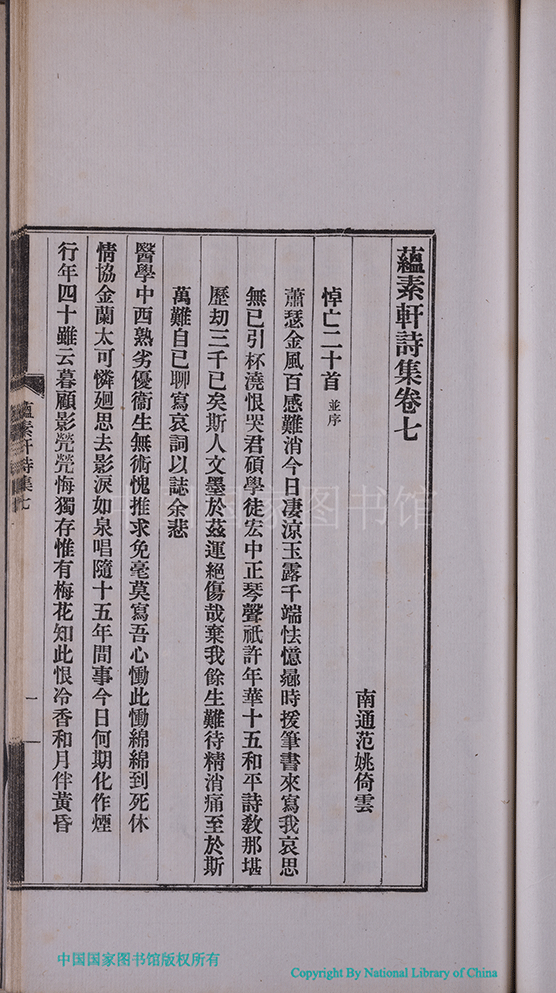 蘊素軒詩集卷七
南通范姚倚雲
悼亡二十首 並序
蕭瑟金風百感難消今日凄涼玉露千端怯憶曩時援筆書來寫我哀思
無已引杯澆恨哭君碩學徒宏中正琴聲祇許年華十五和平詩教那堪
歷劫三千已矣斯人文墨於茲運絕傷哉棄我餘生難待精消痛至於斯
萬難自已聊寫哀詞以誌余悲
醫學中西熟劣優衞生無術愧推求免毫莫寫吾心慟此慟綿綿到死休
情協金蘭太可憐廻思去影淚如泉唱隨十五年間事今日何期化作煙
行年四十雖云暮顧影煢煢悔獨存惟有梅花知此恨冷香和月伴黃昏
蘊素軒詩集七
一
中国国家图书馆
中国国家图书馆版权所有
Copyright By National Library of China